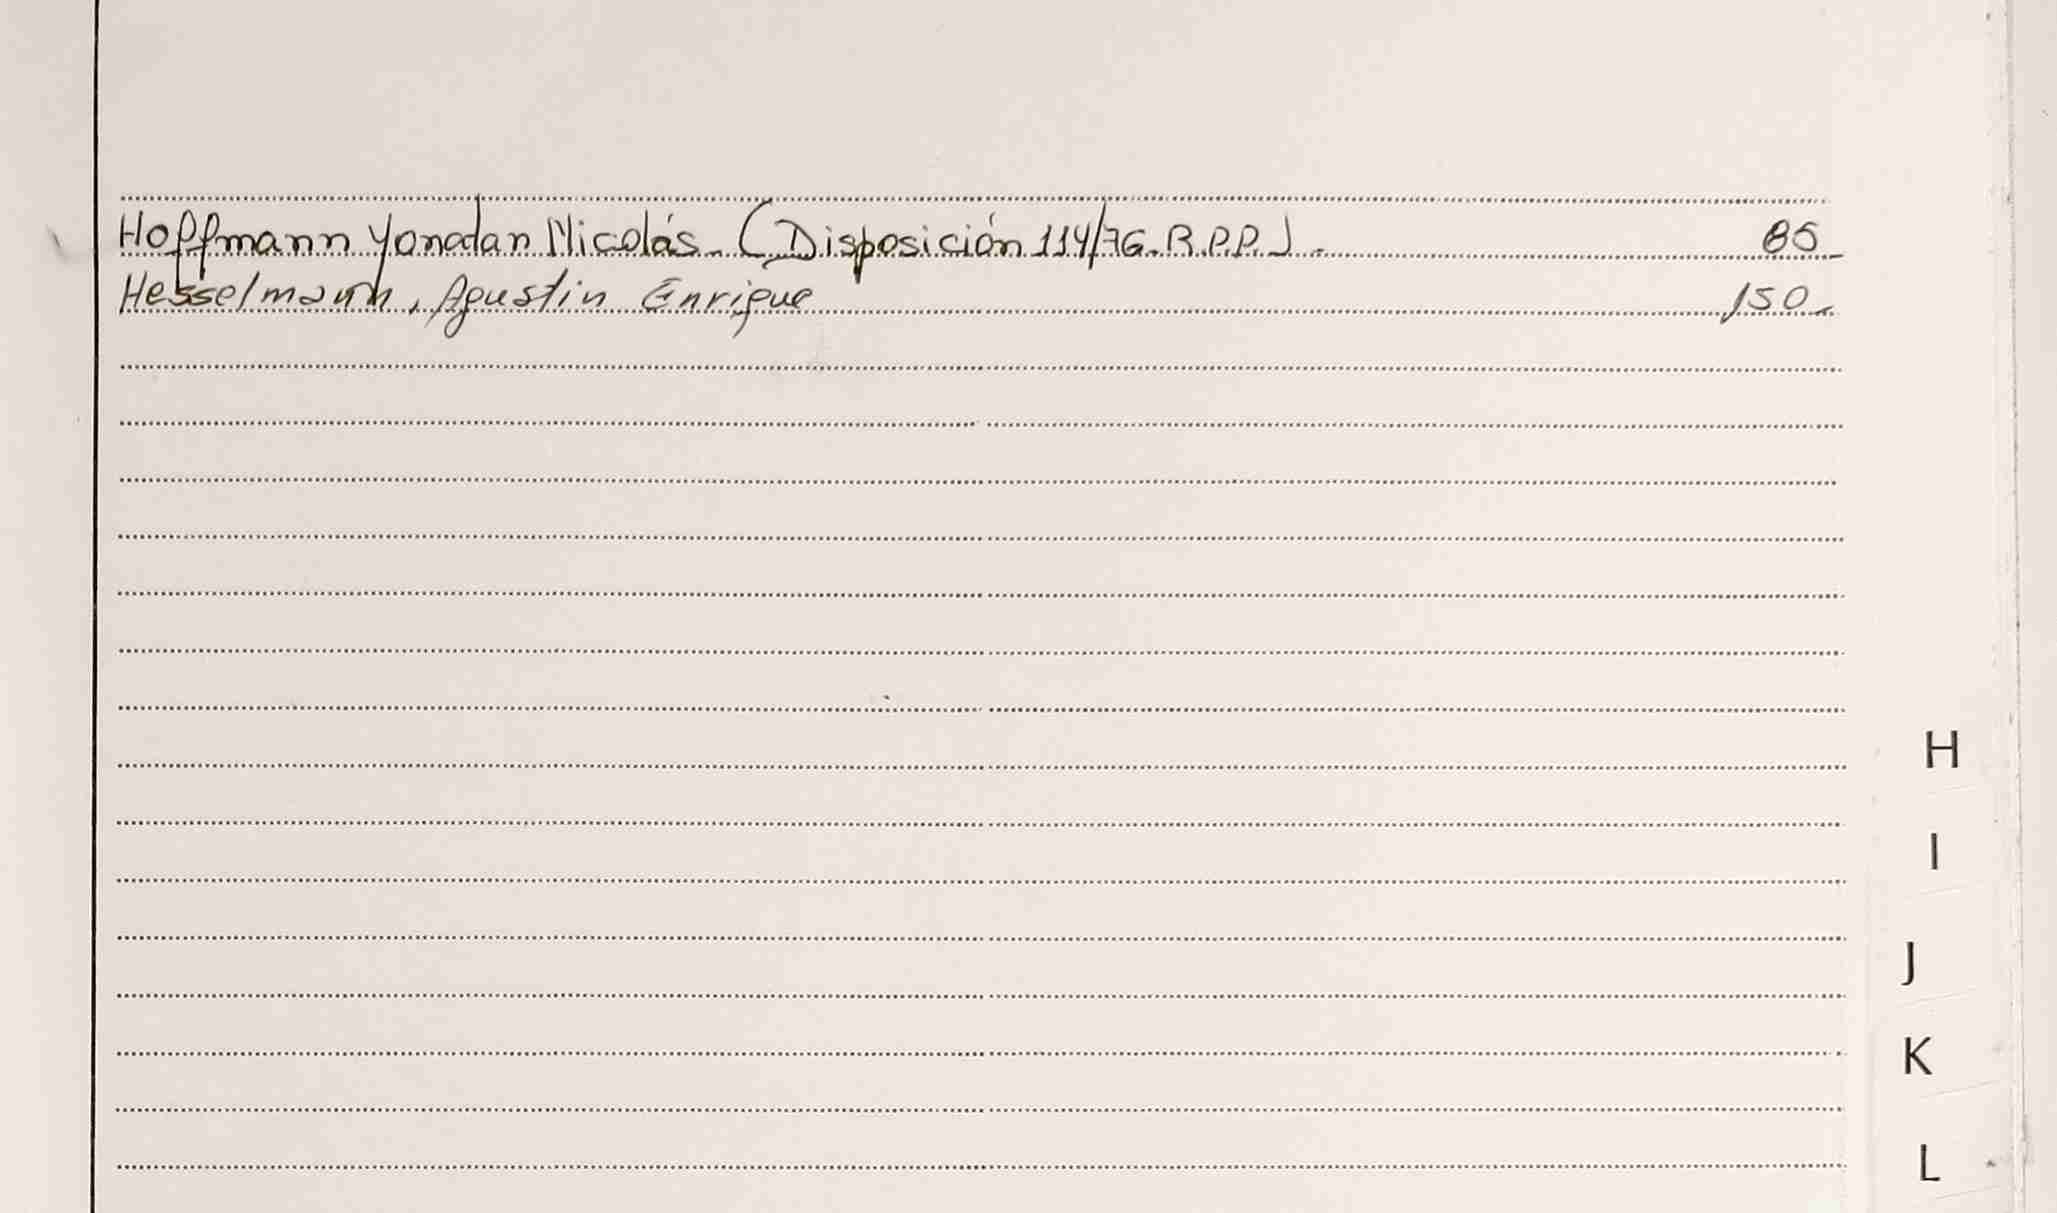 Hoffmann Yonadan Nicolás. (Disposición 114/76. R.P.P.) - 85
Hesselmann, Agustin Enrique 150
H
I
J
K
L